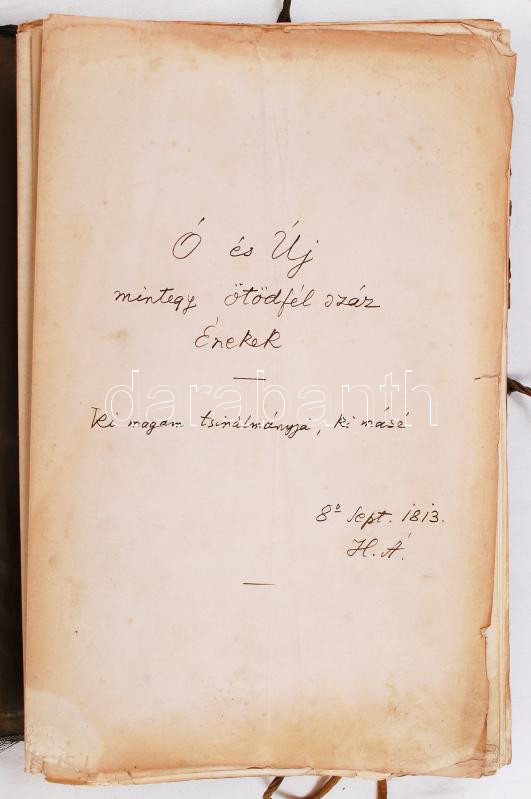 Ó és Új
mintegy ötödfél száz
Énekek
darabanth
Ki magam tsinálmányja, ki másé
8º Sept. 1813.
H. Á.